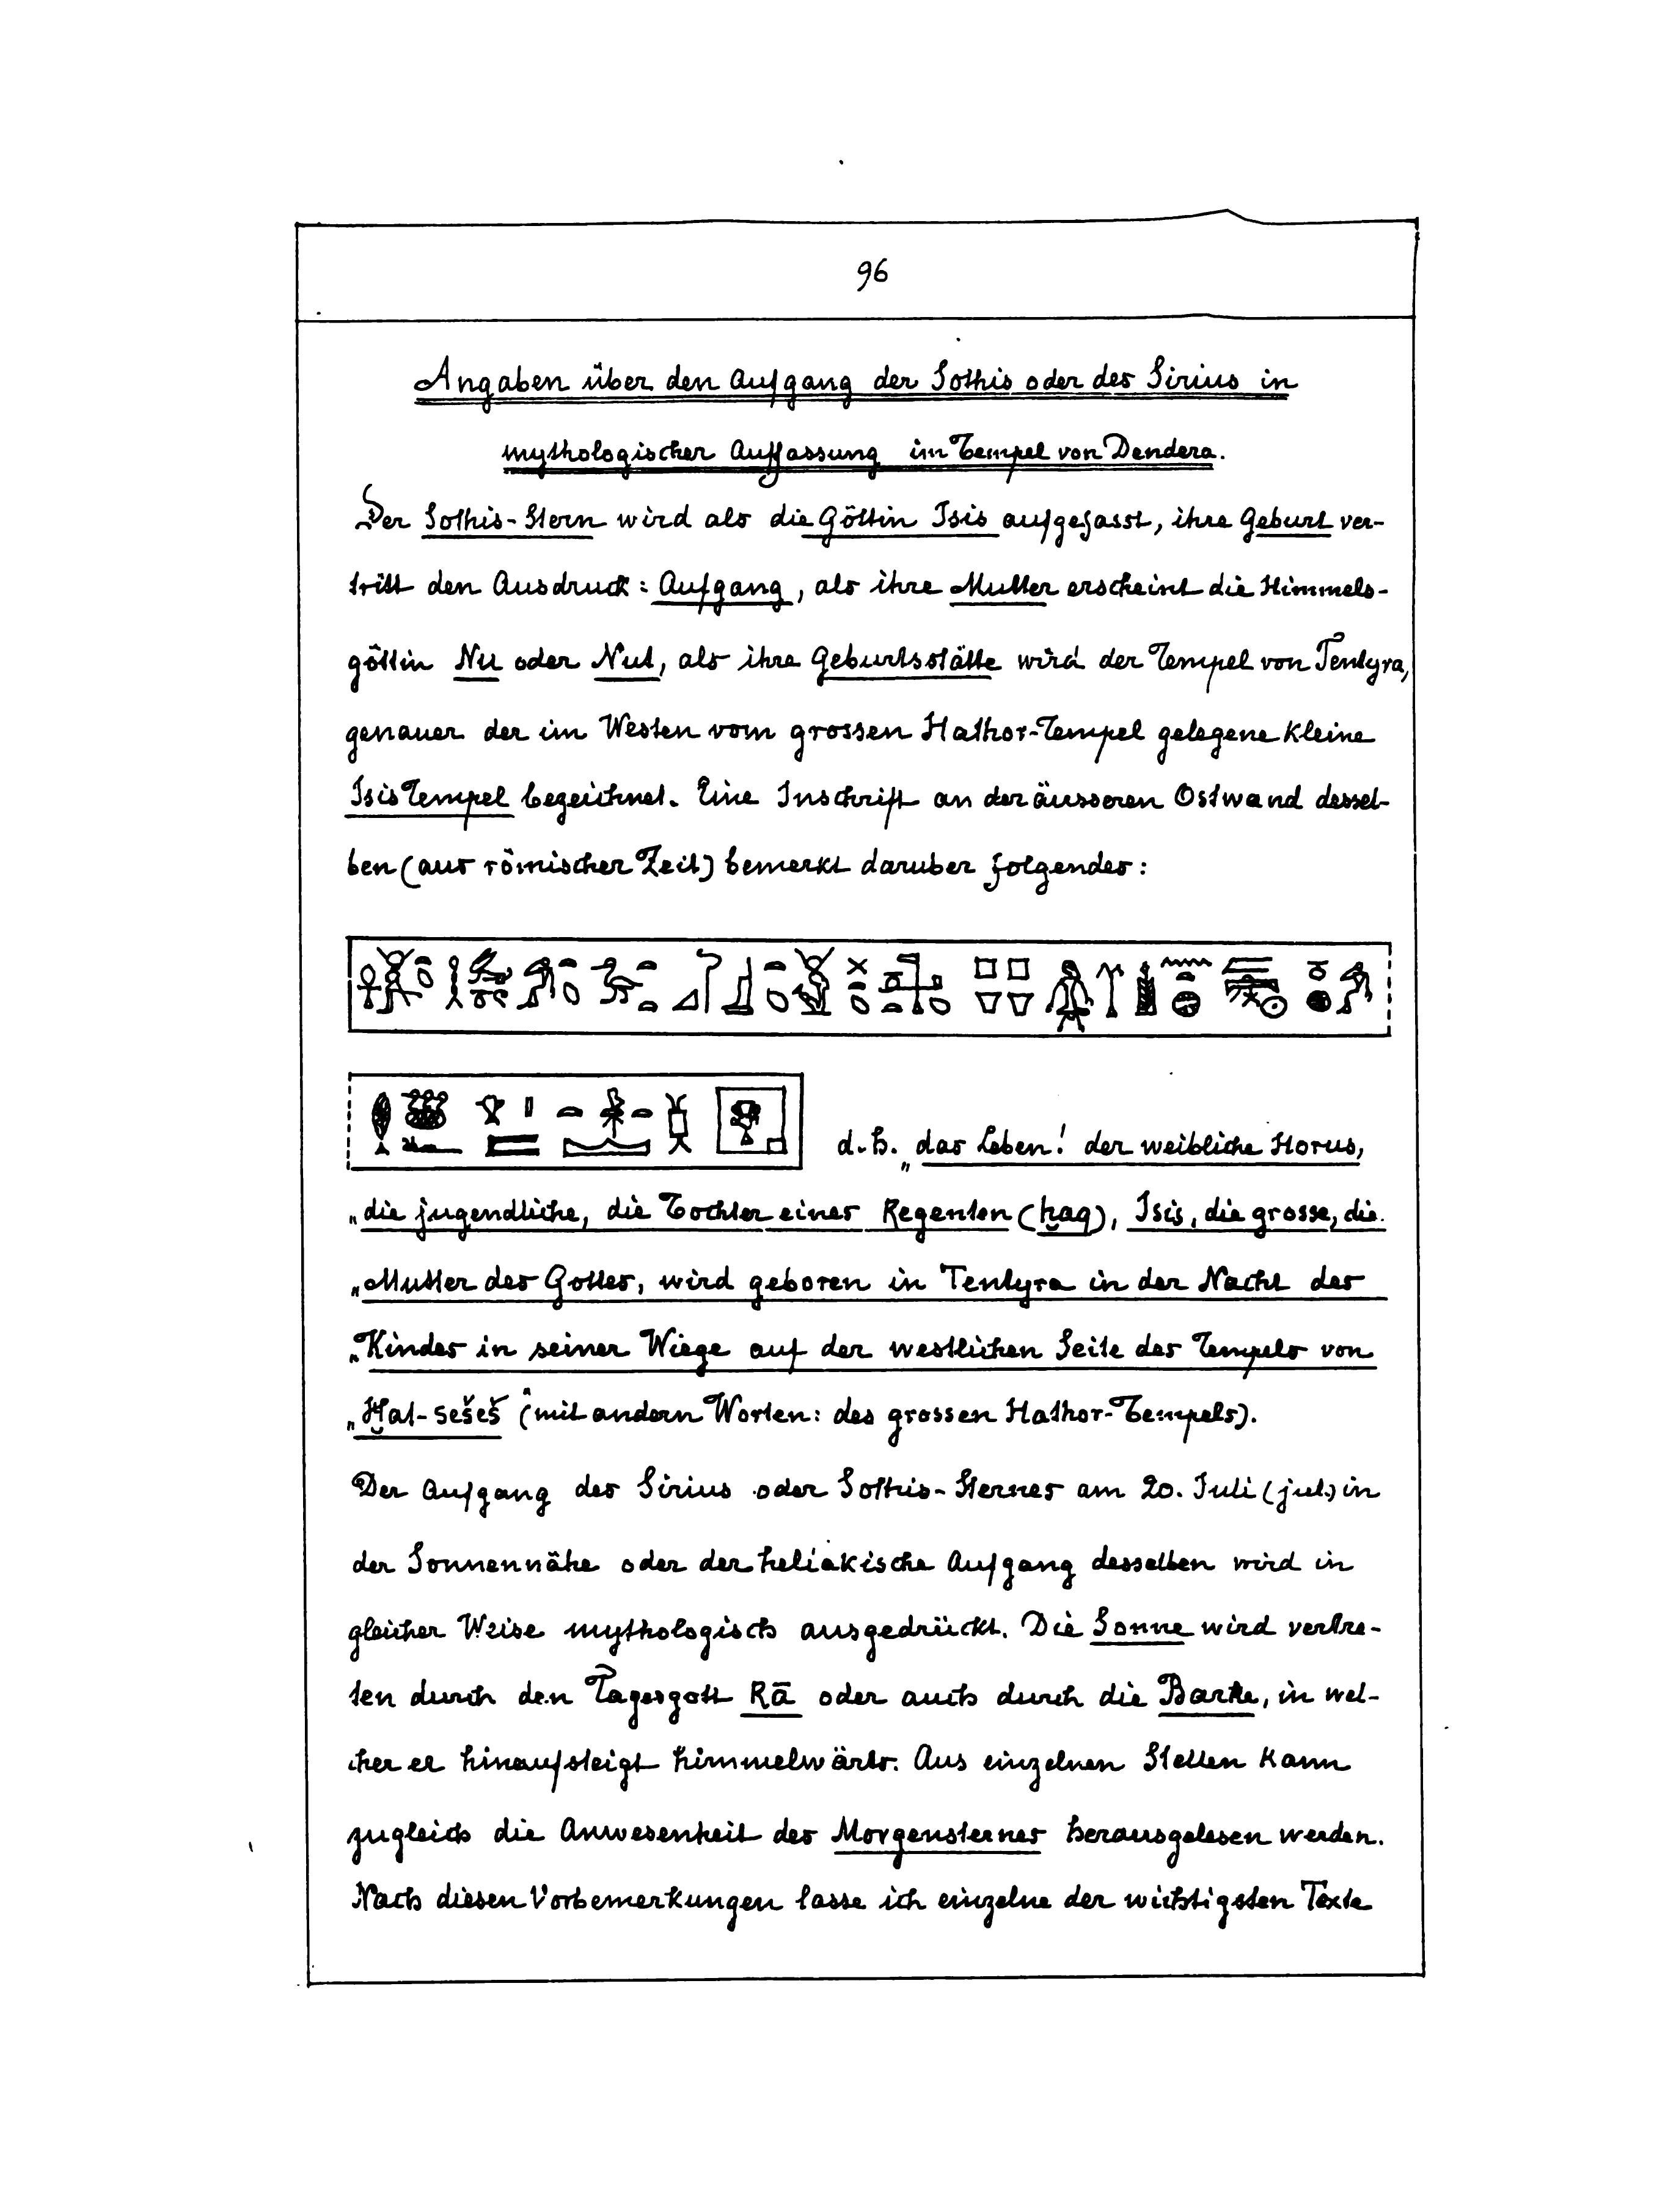 96
Angaben über den Aufgang der Sothis oder des Sirius in
mythologischer Auffassung im Tempel von Dendera.
Der Sothis-Stern wird als die Göttin Isis aufgefasst, ihre Geburt ver-
tritt den Ausdruck: Aufgang, als ihre Mutter erscheint die Himmels-
göttin Nu oder Nut, als ihre Geburtsstätte wird der Tempel von Tentyra,
genauer der im Westen vom grossen Hathor-Tempel gelegene kleine
Isis Tempel bezeichnet. Eine Inschrift an der äusseren Ostwand dessel-
ben (aus römischer Zeit) bemerkt daruber folgendes:
d.h. „das Leben! der weibliche Horus,
„die jugendliche, die Tochter eines Regenten (ḥaq), Isis, die grosse, die
„Mutter des Gottes, wird geboren in Tentyra in der Nacht des
„Kindes in seiner Wiege auf der westlichen Seite des Tempels von
„Ḥat-sešeš" (mit andern Worten: des grossen Hathor-Tempels).
Der Aufgang des Sirius oder Sothis-Sternes am 20. Juli (jul.) in
der Sonnennähe oder der heliakische Aufgang desselben wird in
gleicher Weise mythologisch ausgedrückt. Die Sonne wird vertre-
ten durch den Tagesgott Rā oder auch durch die Barke, in wel-
cher er hinaufsteigt himmelwärts. Aus einzelnen Stellen kann
zugleich die Anwesenheit des Morgensternes herausgelesen werden.
Nach diesen Vorbemerkungen lasse ich einzelne der wichtigsten Texte